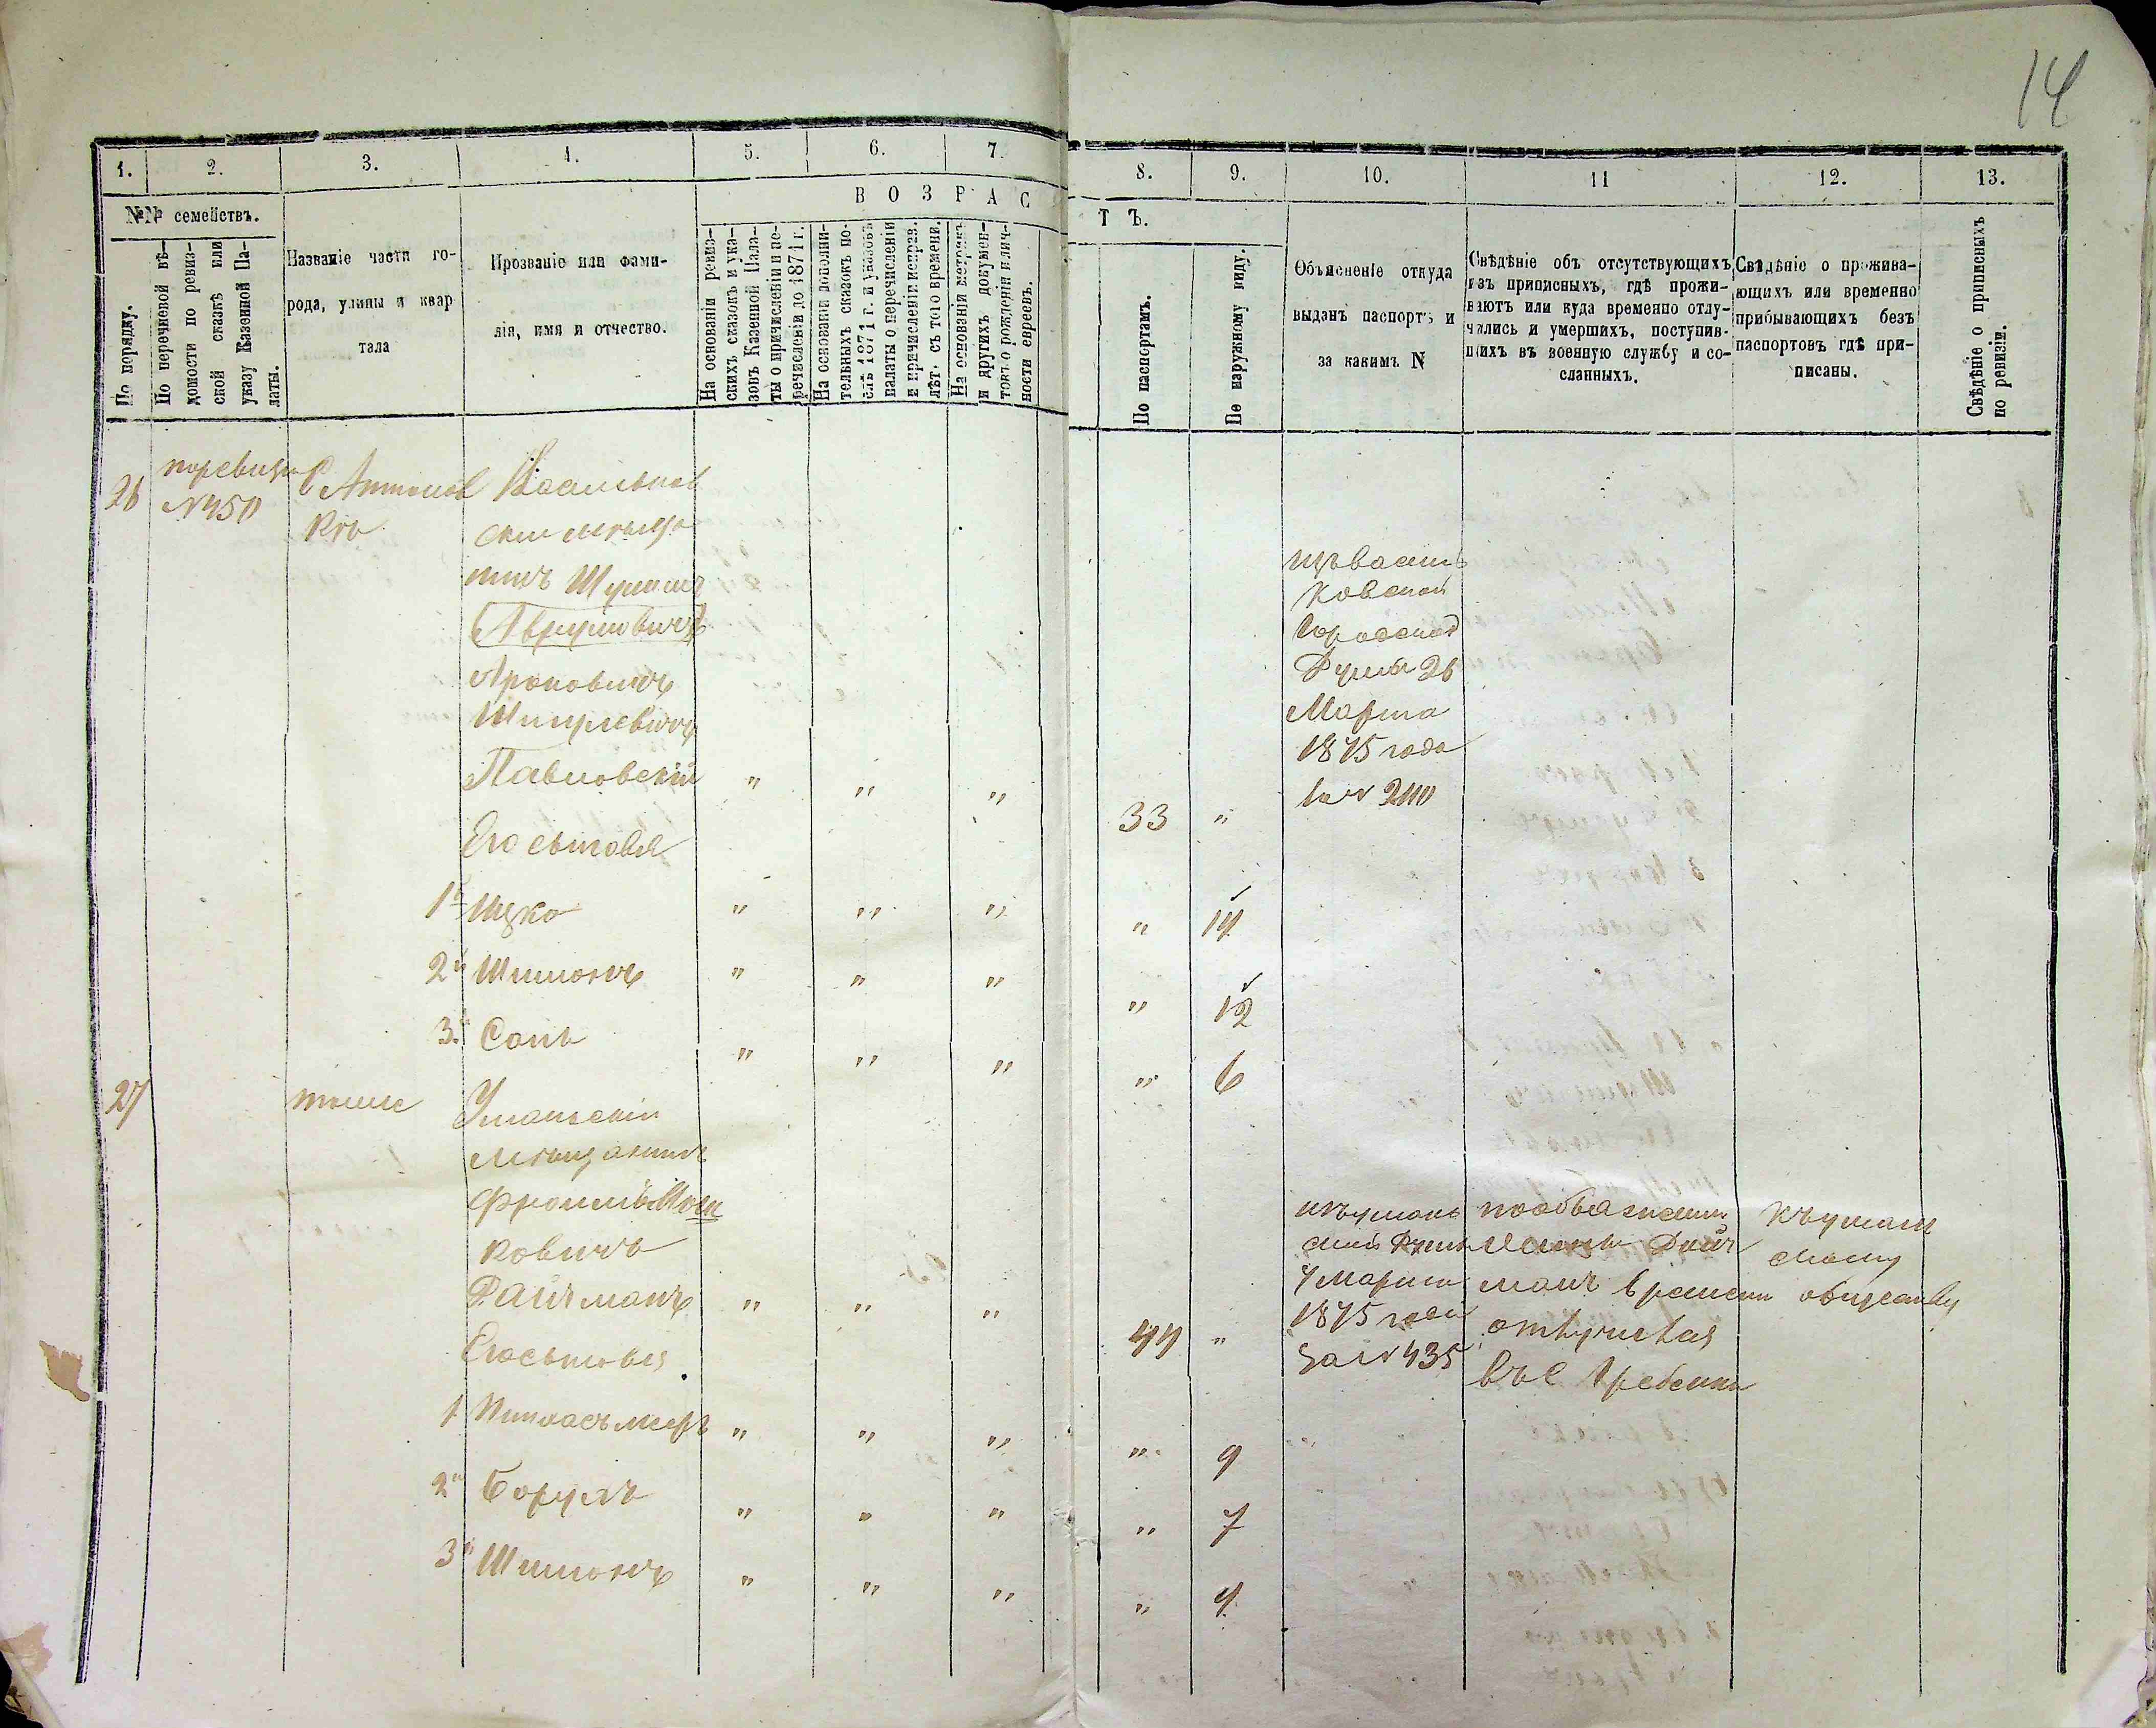 14
1.
2.
3.
4.
5.
6.
7.
8.
9.
10.
11
12.
13.
№№ семействъ.
ВОЗРАС
ТЪ.
По порядку.
По перечневой вѣ-
домости по ревиз-
ской сказкѣ или
указу Казенной Па-
латы.
Названіе части го-
рода, улицы и квар
тала
Прозваніе или фами-
лія, имя и отчество.
На основаніи ревиз-
скихъ сказокъ и ука-
зовъ Казенной Пала-
ты о причисленіи и пе-
речисленіи до 1871 г.
На основаніи дополни-
тельныхъ сказокъ по-
слѣ 1871 г. и указовъ
палаты о перечисленіи
и причисленіи исправ.
лѣт. съ того времени.
На основаніи метрикъ
и другихъ докумен-
товъ о рожденіи и лич-
ности евреевъ.
По паспортамъ.
По наружному виду.
Объясненіе откуда
выданъ паспортъ и
за какимъ N
Свѣдѣніе объ отсутствующихъ
изъ приписныхъ, гдѣ прожи-
ваютъ или куда временно отлу-
чились и умершихъ, поступив-
шихъ въ военную службу и со-
сланныхъ.
Свѣдѣніе о прожива-
ющихъ или временно
прибывающихъ безъ
паспортовъ гдѣ при-
писаны.
Свѣдѣніе о приписныхъ
по ревизіи.
26
№450
С Антонов
кѣ
Васильков
ски мѣща
нинъ
Аврумовичъ
Ароновичъ
Шмулевичъ
Павловскій
" " "
33 "
изъ Василь
ковской
Городской
Думы 26
Марта
1875 года
за № 2110
Его сыновья
1й Ицко " " " " 14
2й Шимонъ " " " " 12
3й " " " " 6
27
тоже
Уманскій
мѣщанинъ
ковичъ
" " "
44 "
4 Марта
1875 года
за № 435
по объясненію
отлучился
въ С Гребенки
къ Уман
скому
обществу
Его сыновья
1 " " " " 9
2й Борухъ " " " " 7
3й Шимонъ " " " " 4